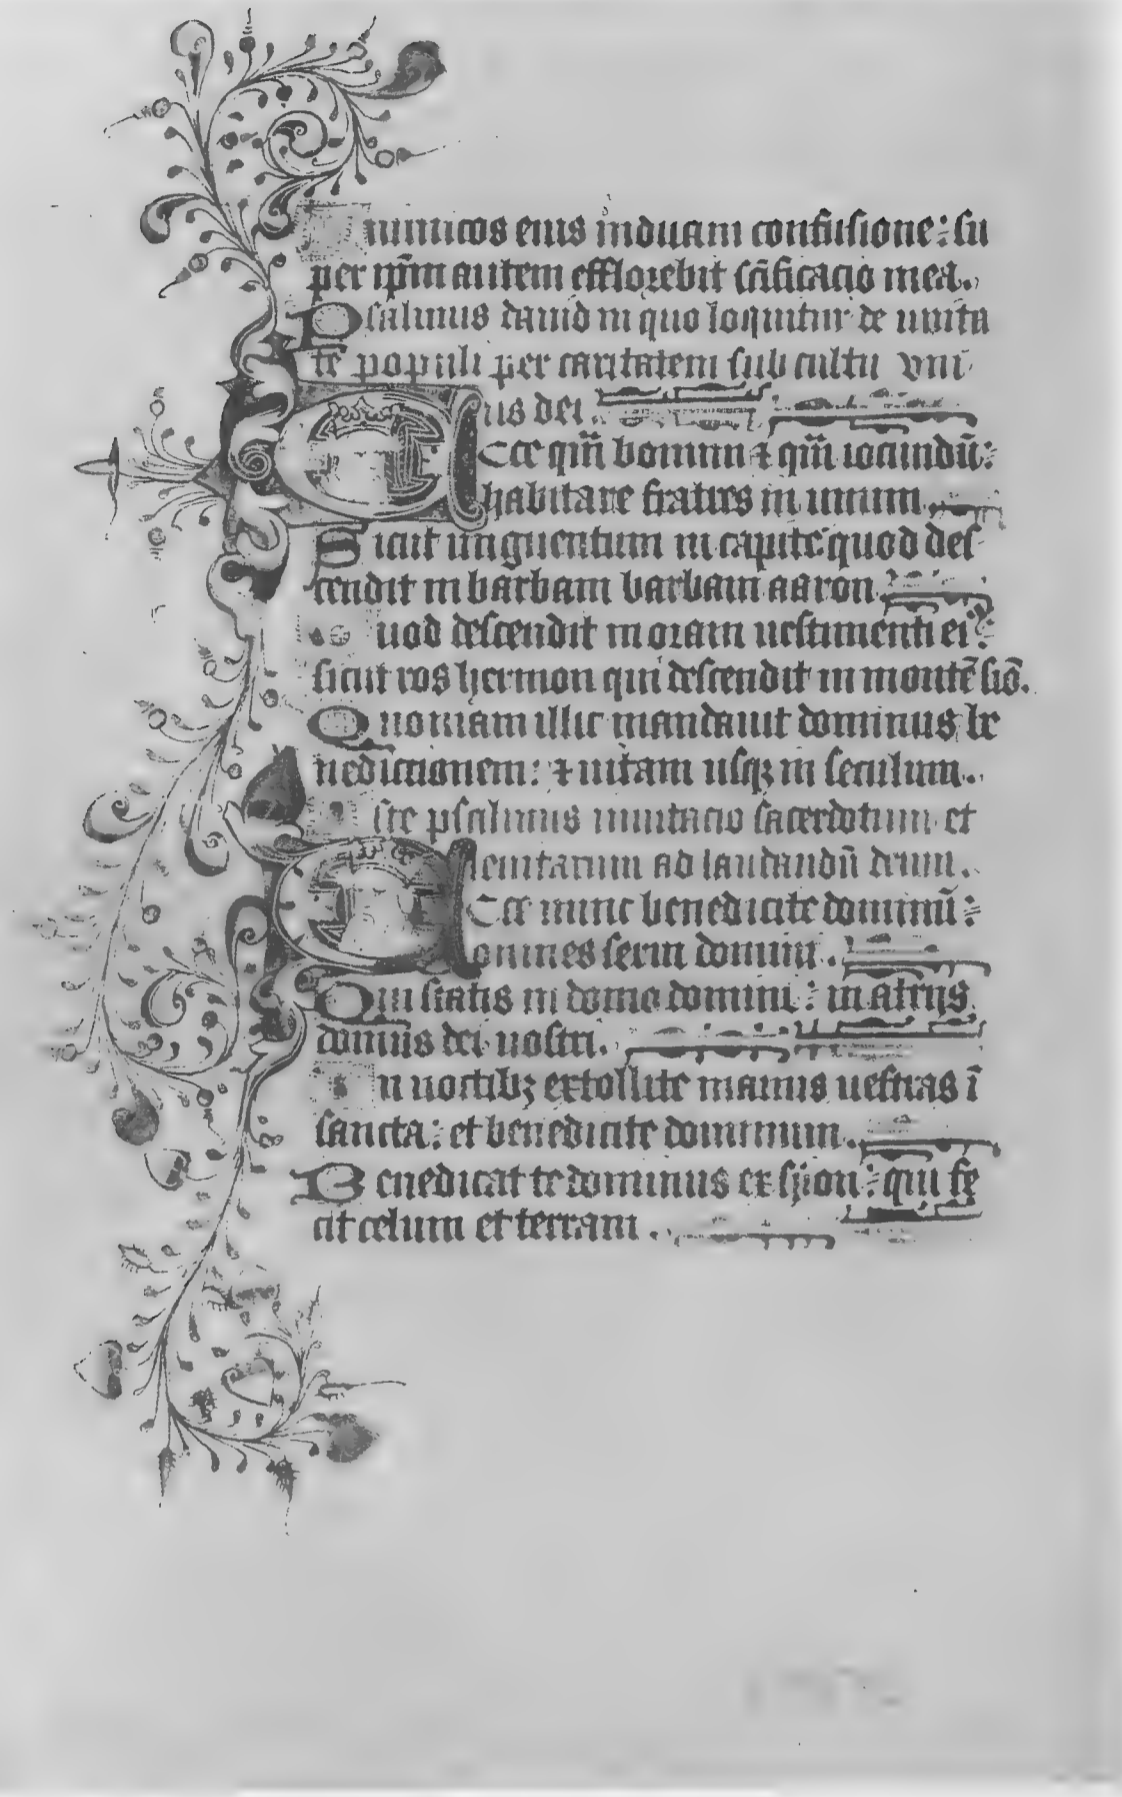 Inimicos eius induam confusione: su
per ip̄m autem efflorebit sc̄ificacio mea.
Psalmus dauid in quo loquitur de unita
te populi per caritatem sub cultu vni
us dei.
Ecce qm̄ bonum ⁊ qm̄ iocundū:
habitare fratres in unum.
Sicut unguentum in capite: quod des
cendit in barbam barbam aaron
Quod descendit in oram uestimenti ei⁹:
sicut ros hermon qui descendit in montē siō.
Quoniam illic mandauit dominus be
nedictionem: ⁊ uitam usqꝫ in seculum.
Iste psalmus inuitacio sacerdotum et
leuitarum ad laudandū deum.
Ecce nunc benedicite dominū:
omnes serui domini.
Qui statis in domo domini: in atriis
domus dei nostri.
In noctibꝫ extollite manus uestras ī
sancta: et benedicite dominum.
Benedicat te dominus ex syon: qui fe
cit celum et terram.